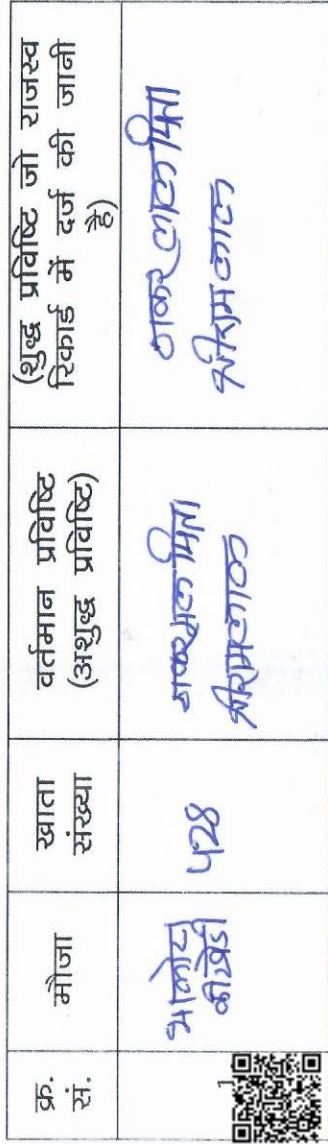 क्र.
सं.
मौजा
खाता
संख्या
वर्तमान प्रविष्टि
(अशुद्ध प्रविष्टि)
(शुद्ध प्रविष्टि जो राजस्व
रिकार्ड में दर्ज की जानी
है)
1
की खेडी
428
पिता
श्रीराम लाल
शंकर लाल पिता
श्रीराम लाल